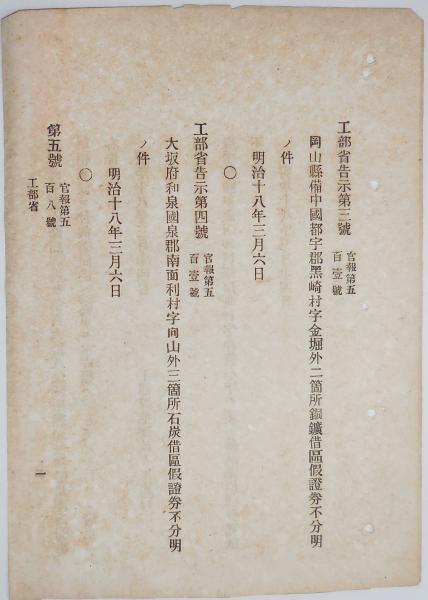 工部省告示第三號 官報第五百壹號
岡山縣備中國都宇郡黑崎村字金堀外二箇所銅鑛借區假證劵不分明
ノ件
明治十八年三月六日
○
工部省告示第四號 官報第五百壹號
大坂府和泉國泉郡南面利村字向山外三箇所石炭借區假證劵不分明
ノ件
明治十八年三月六日
○
第五號 官報第五百八號
工部省
一